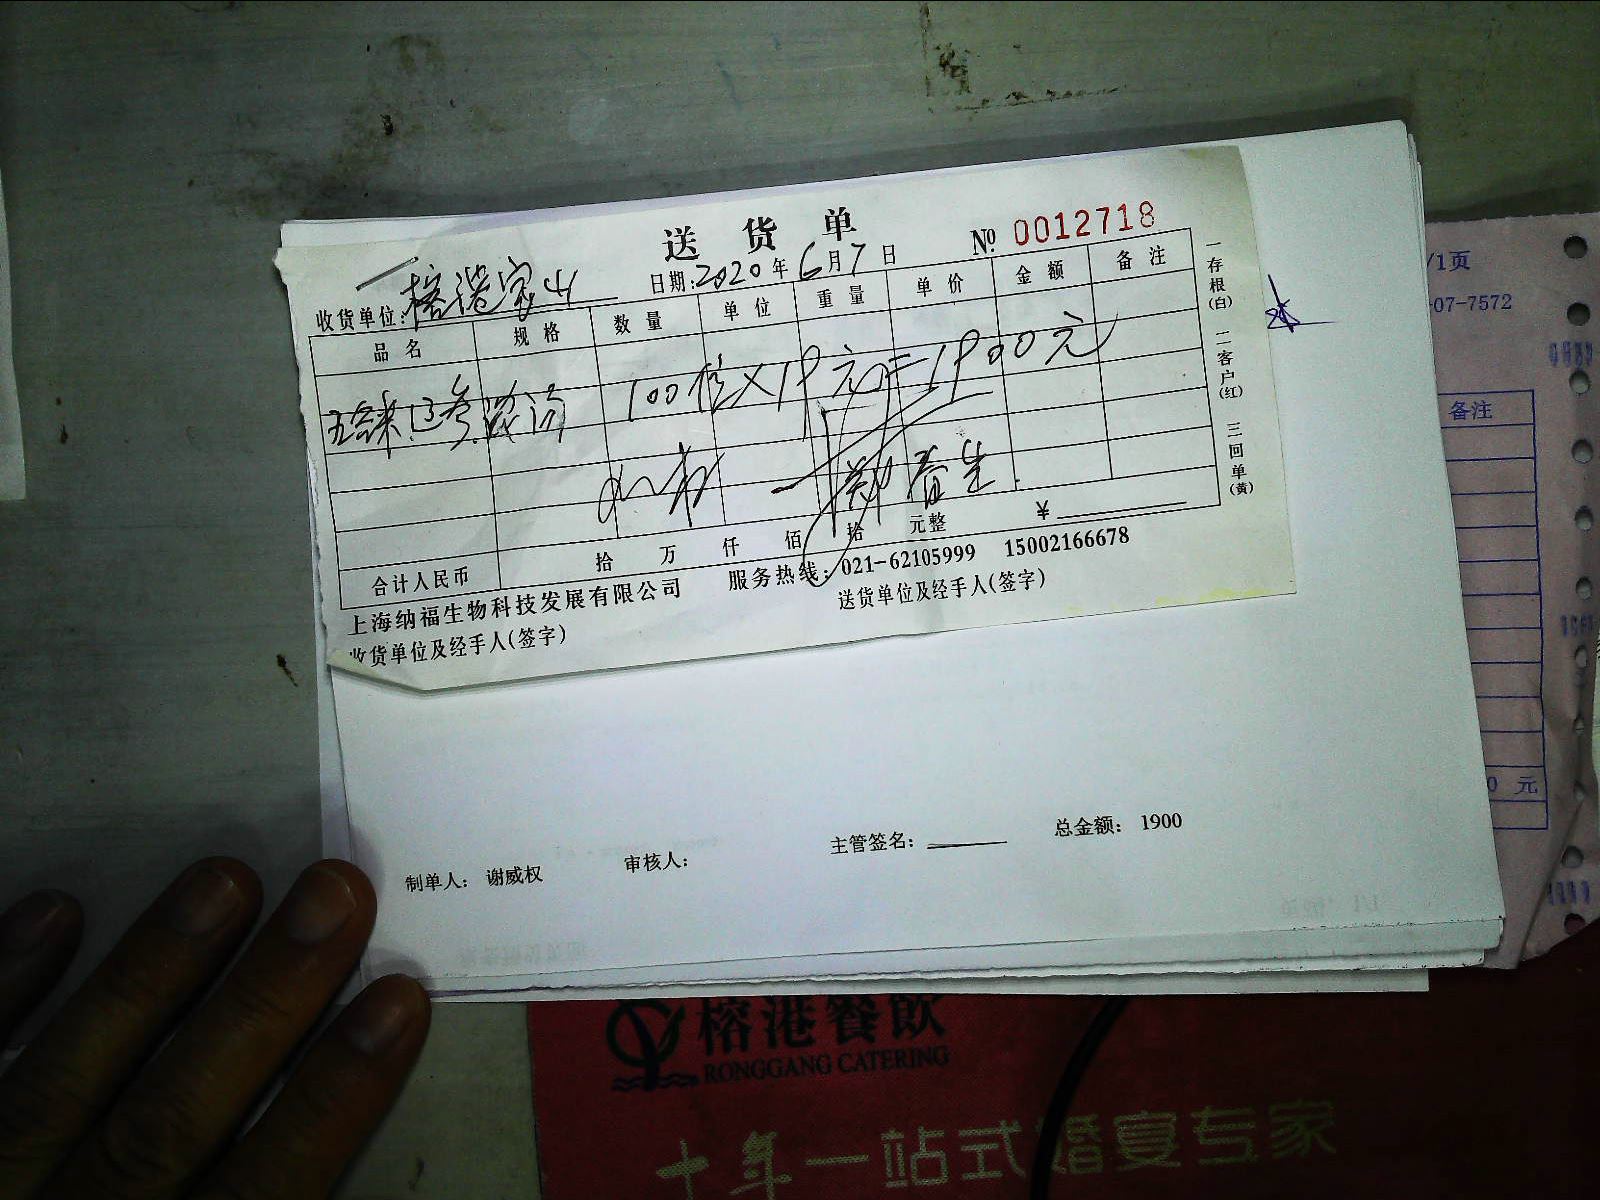 送货单
№ 0012718
收货单位: 榕港宝山 日期: 2020年6月7日
品名 规格 数量 单位 重量 单价 金额 备注
五谷来辽参浓汤 100位×19元=1900元
合计人民币 拾 万 仟 佰 拾 元整 ¥
上海纳福生物科技发展有限公司 服务热线: 021-62105999 15002166678
收货单位及经手人(签字) 送货单位及经手人(签字)
一存根(白) 二客户(红) 三回单(黄)
制单人: 谢威权 审核人: 主管签名: 总金额: 1900
/1页
-07-7572
备注
0 元
榕港餐飲
RONGGANG CATERING
十年一站式婚宴专家